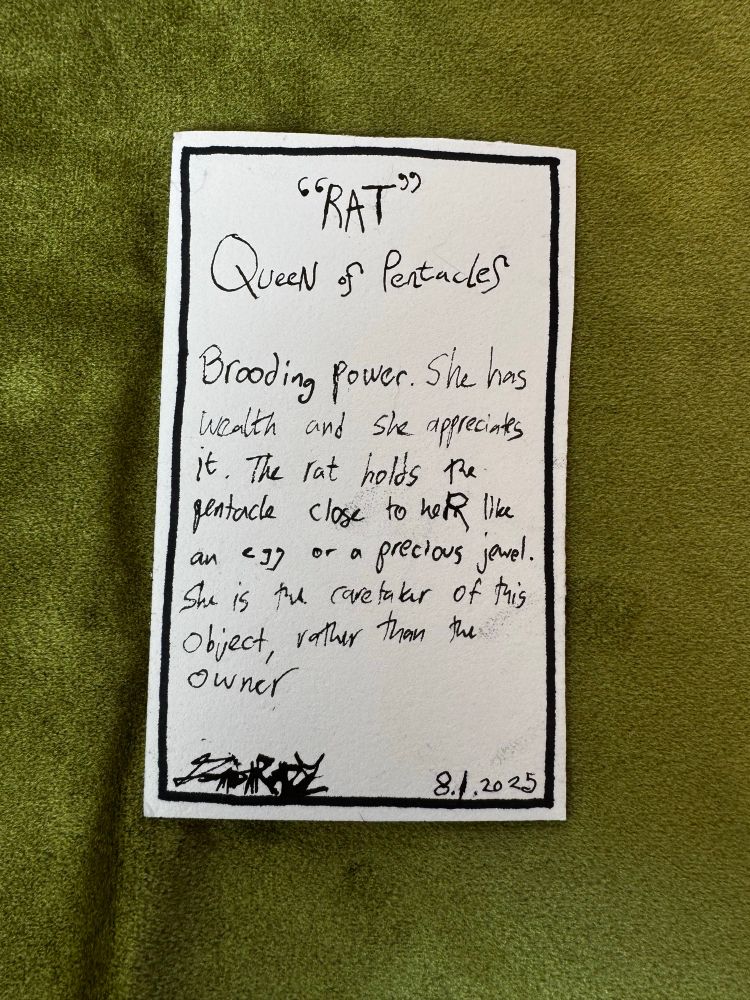 “RAT”
Queen of Pentacles
Brooding power. She has
wealth and she appreciates
it. The rat holds the
pentacle close to heR like
an egg or a precious jewel.
She is the caretaker of this
object, rather than the
owner
8.1.2025